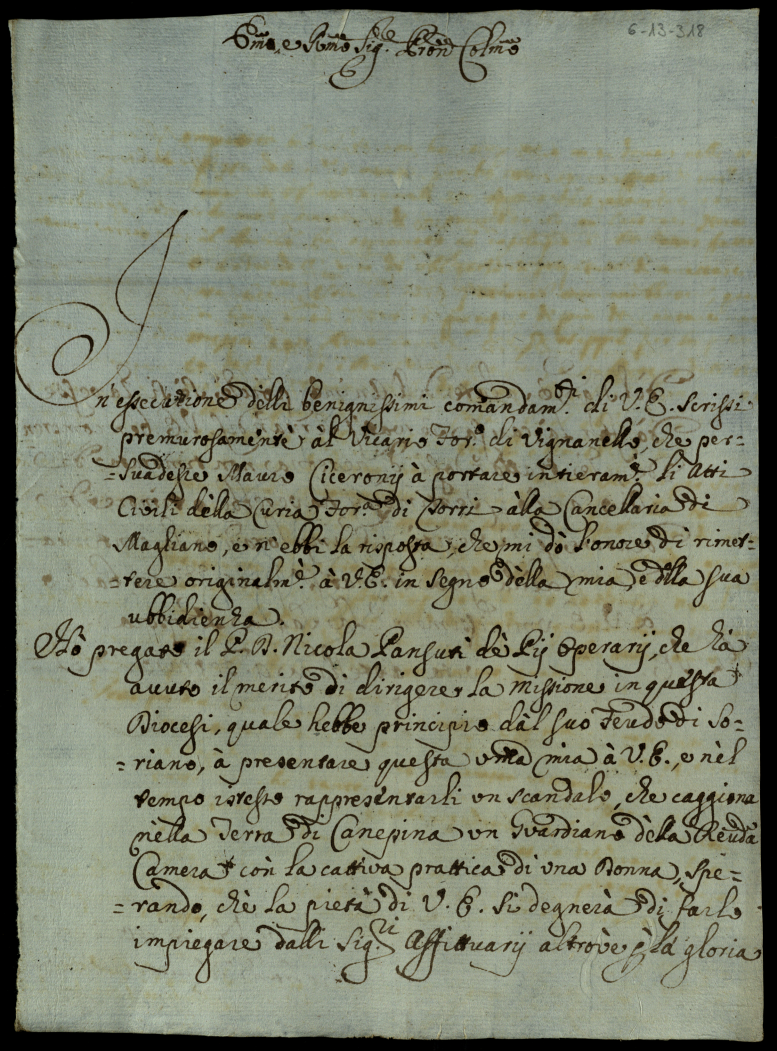 6-13-318
Em̃o, e R̃mo Sig.re Pron̄e Colm̃o
In essecutione delli benignissimi comandam.ti di V. E. scrissi
premurosamente al Vicario For.o di Vignanello, che per=
=suadesse Mauro Ciceronij à portare intieram.te li Atti
Civili della Curia For.a di Torri alla Cancellaria di
Magliano, e n'ebbi la risposta, che mi dò l'onore di rimet=
=tere originalm.te à V. E. in segno della mia, e della sua
ubbidienza.
Hò pregato il P. D. Nicola Pansuti dè Pij Operarij, che hà
avuto il merito di dirigere la missione in questa
Diocesi, quale hebbe principio dàl suo Feudo di So=
=riano, à presentare questa um̃a mia à V. E., e nèl
tempo istesso rappresentarli un scandalo, che caggiona
nèlla Terra di Canepina un Guardiano della Reũda
Camera con la cattiva prattica di una Donna, spe=
=rando, chè la pietà di V. E. si degnerà di farlo
impiegare dalli Sig.ri Affittuarij altrove p la gloria